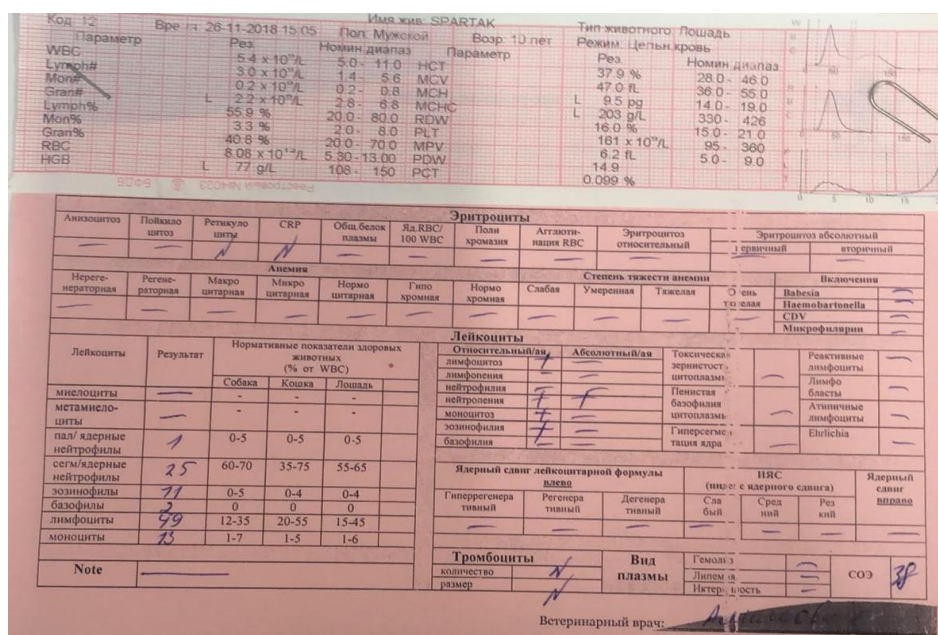 Код 12 Вре 26-11-2018 15:05 Имя жив. SPARTAK Тип животного: Лошадь
Пол: Мужской Возр: 10 лет Режим: Цельн.кровь
Параметр Рез. Номин диапаз Параметр Рез. Номин диапаз
WBC 5.4 x 10^9/L 5.0 - 11.0 HCT 37.9 % 28.0 - 46.0
Lymph# 3.0 x 10^9/L 1.4 - 5.6 MCV 47.0 fL 36.0 - 55.0
Mon# 0.2 x 10^9/L 0.2 - 0.8 MCH L 9.5 pg 14.0 - 19.0
Gran# L 2.2 x 10^9/L 2.8 - 6.8 MCHC L 203 g/L 330 - 426
Lymph% 55.9 % 20.0 - 80.0 RDW 16.0 % 15.0 - 21.0
Mon% 3.3 % 2.0 - 8.0 PLT 161 x 10^9/L 95 - 360
Gran% 40.8 % 20.0 - 70.0 MPV 6.2 fL 5.0 - 9.0
RBC 8.06 x 10^12/L 5.30 - 13.00 PDW 14.9
HGB L 77 g/L 108 - 150 PCT 0.099 %
50 150
50 150
5 10 15
Эритроциты
Анизоцитоз Пойкило цитоз Ретикуло циты CRP Общ.белок плазмы Яд.RBC/ 100 WBC Поли хромазия Агглюти- нация RBC Эритроцитоз относительный Эритроцитоз абсолютный
вторичный
— — N N — — — — — — —
Анемия Степень тяжести анемии Включения
Нереге- нераторная Регене- раторная Макро цитарная Микро цитарная Нормо цитарная Гипо хромная Нормо хромная Слабая Умеренная Тяжелая Babesia —
Haemobartonella —
CDV —
Микрофилярии —
Лейкоциты
Лейкоциты Результат Нормативные показатели здоровых животных (% от WBC)
Собака Кошка Лошадь
миелоциты — - - -
метамиело- циты — - - -
пал/ ядерные нейтрофилы 1 0-5 0-5 0-5
сегм/ядерные нейтрофилы 25 60-70 35-75 55-65
эозинофилы 11 0-5 0-4 0-4
базофилы 2 0 0 0
лимфоциты 49 12-35 20-55 15-45
моноциты 13 1-7 1-5 1-6
Note —
Относительный/ая Абсолютный/ая
лимфоцитоз + —
лимфопения — —
нейтрофилия — —
нейтропения + +
моноцитоз + —
эозинофилия + —
базофилия + —
Токсическая зернистост цитоплазмы —
Пенистая базофилия цитоплазмы —
Гиперсегме тация ядра —
Реактивные лимфоциты —
Лимфо бласты —
Атипичные лимфоциты —
Ehrlichia —
Ядерный сдвиг лейкоцитарной формулы влево
Гиперрегенера тивный Регенера тивный Дегенера тивный
— — —
ИЯС
(индекс ядерного сдвига)
Сла бый Сред ний Рез кий
— — —
Ядерный сдвиг вправо
—
Тромбоциты
количество N
размер N
Вид плазмы
Гемолиз —
Липемия —
Иктеричность —
СОЭ 38
Ветеринарный врач: